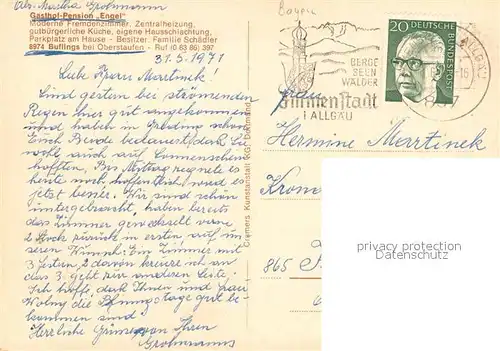 Abs. Martha Grohmann
Gasthof-Pension „Engel"
Moderne Fremdenzimmer, Zentralheizung,
gutbürgerliche Küche, eigene Hausschlachtung,
Parkplatz am Hause - Besitzer: Familie Schädler
8974 Buflings bei Oberstaufen - Ruf (0 63 86) 397
31.5.1971
Liebe Frau Merrtinek!
Sind gestern bei strömenden
Regen hier gut angekommen
und haben in
Euch Beide bedauert, daß Sie
wohl auch auf Sonnenschein
hofften. Bis Mittag regnete es
heute noch, hoffentlich wird es
jetzt besser. Wir sind schön
untergebracht, haben bereits
das Zimmer gewechselt vom
2 Stock zurück in ersten auf un
seren Wunsch. Ein Zimmer mit
3 Fenstern, 2 davon kreuze ich an
das 3. geht zur anderen Seite.
Ich hoffe, daß Ihnen und Frau
Wolny die Pfingsttage gut be-
kommen sind!
Herzliche Grüsse von Ihren
Grohmanns
Cramers Kunstanstalt KG, Dortmund
Bayern
BERGE
SEEN
WÄLDER
Immenstadt
I ALLGÄU
20
DEUTSCHE
BUNDESPOST
Frau
Hermine Merrtinek
865
privacy protection
Datenschutz